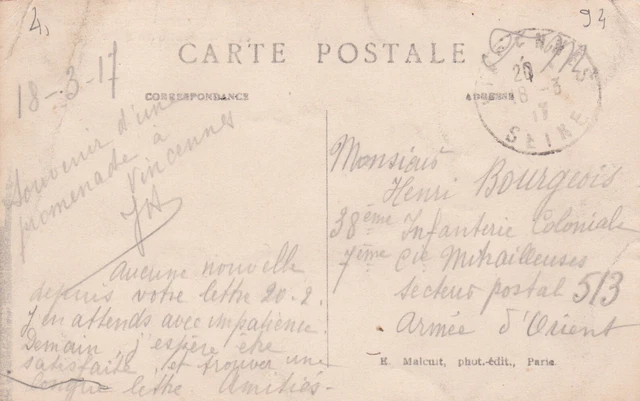 4,
94
CARTE POSTALE
CORRESPONDANCE
ADRESSE
18-3-17
Souvenir d'une
promenade à
Vincennes
JA
Aucune nouvelle
depuis votre lettre 20-2.
J'en attends avec impatience.
Demain, j'espère être
satisfaite et trouver une
longue lettre Amitiés-
20
18-3
17
SEINE
Monsieur
Henri Bourgeois
38ème Infanterie Coloniale
7ème Cie Mitrailleuses
Secteur postal 513
Armée d'Orient
E. Malcuit, phot.-édit., Paris.